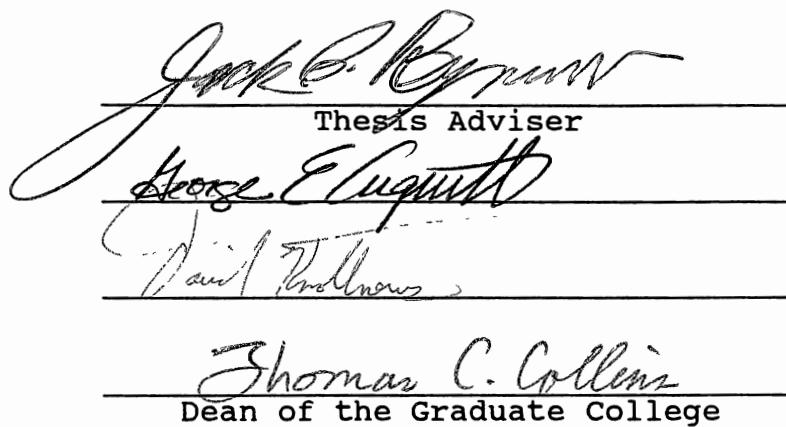 Jack E. Bynum
Thesis Adviser
George E Arquitt
David
Thomas C. Collins
Dean of the Graduate College